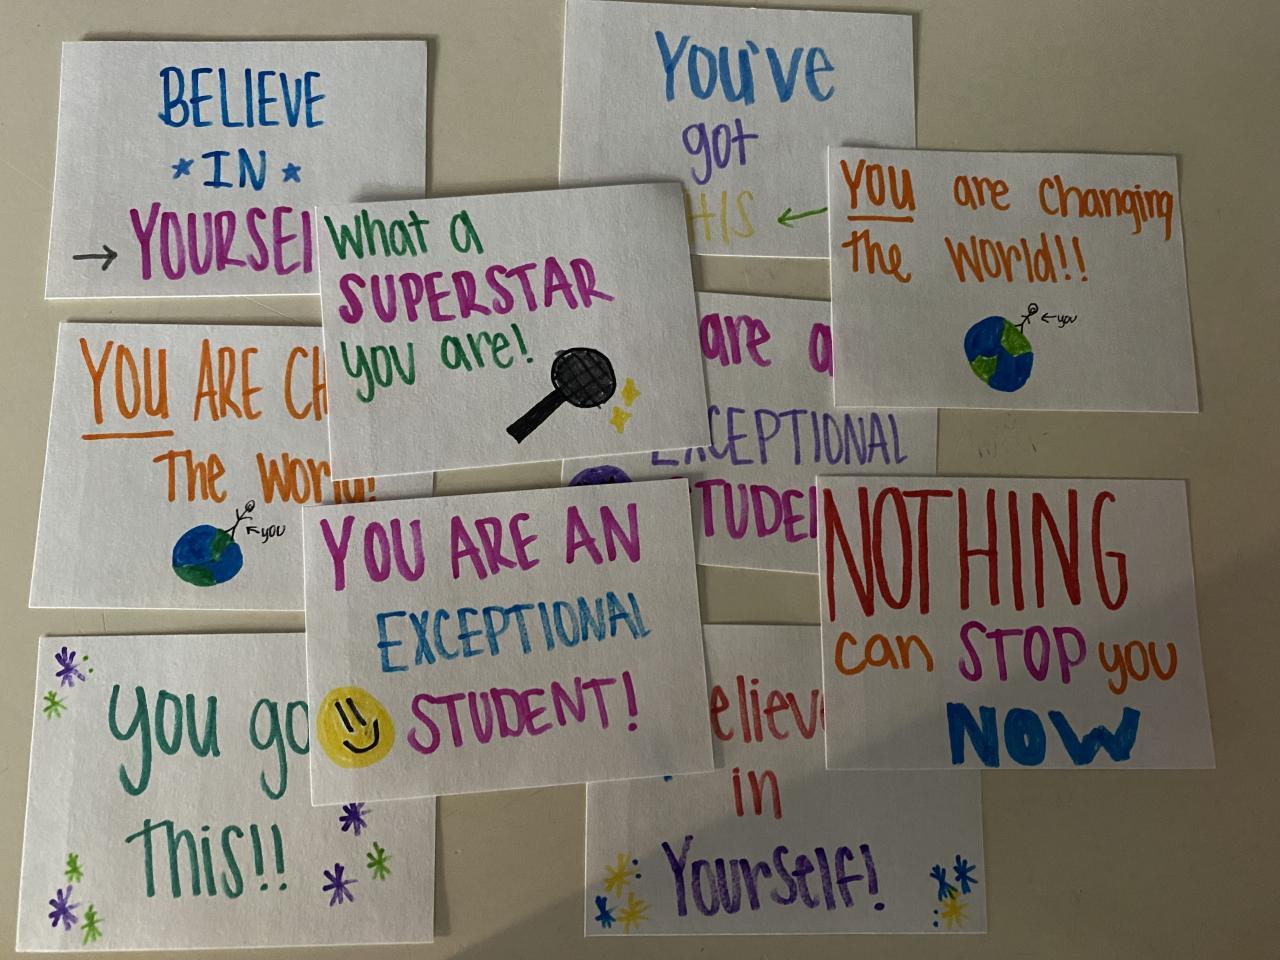 BELIEVE
IN
YOURSEL
You've
got
THIS
What a
SUPERSTAR
you are!
YOU are changing
the World!!
you
YOU ARE CH
The World!
you
are a
EXCEPTIONAL
STUDEN
YOU ARE AN
EXCEPTIONAL
STUDENT!
NOTHING
can STOP you
NOW
you go
This!!
elieve
in
Yourself!